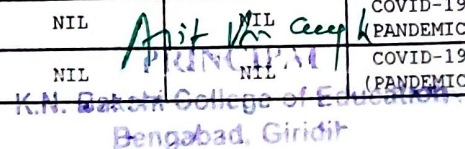 NIL NIL COVID-19
(PANDEMIC
NIL NIL COVID-19
PRINCIPAL
(PANDEMIC
K.N. Bakshi College of Education
Bengabad, Giridih